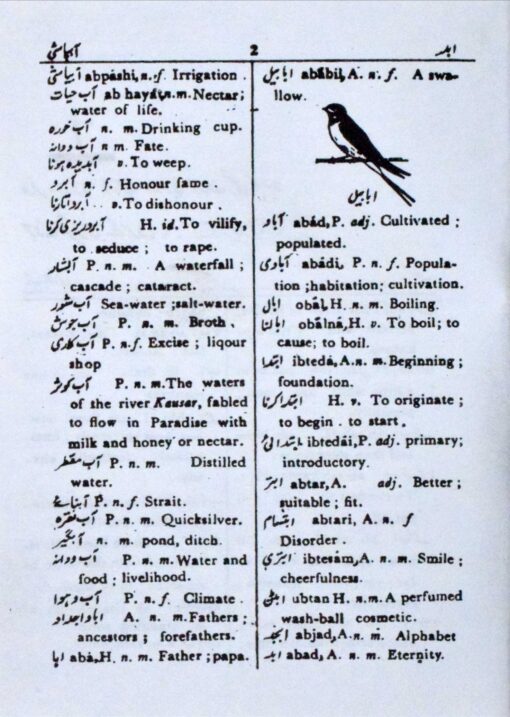 آبپاشی 2 ابد
آبپاشی abpáshi, n. f. Irrigation.
آب حیات ab hayát, n.m. Nectar;
water of life.
آب خورہ n. m. Drinking cup.
آب و دانہ n m. Fate.
آبدیدہ ہونا v. To weep.
آبرو n. f. Honour fame.
آبرو اتارنا v. To dishonour.
آبروریزی کرنا H. id. To vilify,
to seduce; to rape.
آبشار P. n. m. A waterfall;
cascade; cataract.
آب شور Sea-water; salt-water.
آب جوش P. n. m. Broth.
آب کاری P. n. f. Excise; liqour
shop
آب کوثر P. n. m. The waters
of the river Kausar, fabled
to flow in Paradise with
milk and honey or nectar.
آب مقطر P. n. m. Distilled
water.
آبنائے P. n. f. Strait.
آب نقرہ P. n. m. Quicksilver.
آبگیر n. m. pond, ditch.
آب و دانہ P. n. m. Water and
food; livelihood.
آب و ہوا P. n. f. Climate.
اباو اجداد A. n. m. Fathers;
ancestors; forefathers.
ابا abá, H. n. m. Father; papa.
ابابیل abábil, A. n. f. A swa-
llow.
ابابیل
آباد abád, P. adj. Cultivated;
populated.
آبادی abádi, P. n. f. Popula-
tion; habitation; cultivation.
ابال obál, H. n. m. Boiling.
ابالنا obálná, H. v. To boil; to
cause; to boil.
ابتدا ibtedá, A. n. m. Beginning;
foundation.
ابتدا کرنا H. v. To originate;
to begin. to start.
ابتدائی ibtedái, P. adj. primary;
introductory.
ابتر abtar, A. adj. Better;
suitable; fit.
ابتسام abtari, A. n. f
Disorder.
ابتری ibtesám, A. n. m. Smile;
cheerfulness.
ابٹن ubtan H. n. m. A perfumed
wash-ball cosmetic.
ابجد abjad, A. n. m. Alphabet
ابد abad, A. n. m. Eternity.